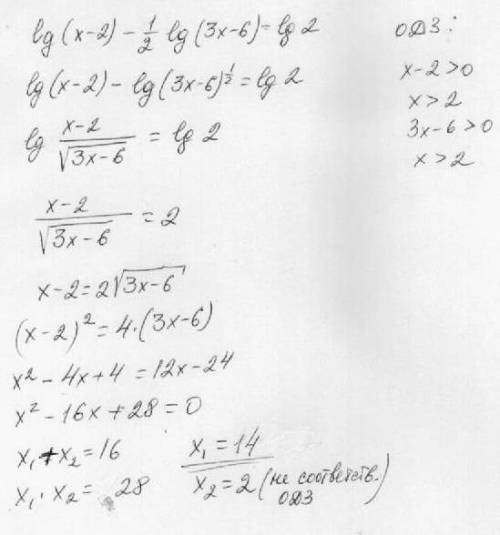 lg(x-2) - 1/2 lg(3x-6) = lg 2
lg(x-2) - lg(3x-6)^(1/2) = lg 2
lg (x-2)/√(3x-6) = lg 2
(x-2)/√(3x-6) = 2
x-2=2√(3x-6)
(x-2)² = 4·(3x-6)
x² - 4x+4 = 12x-24
x² - 16x + 28 = 0
x₁ + x₂ = 16
x₁ · x₂ = 28
x₁ = 14
x₂ = 2 (не соответств.
ОДЗ)
ОДЗ:
x-2>0
x>2
3x-6>0
x>2